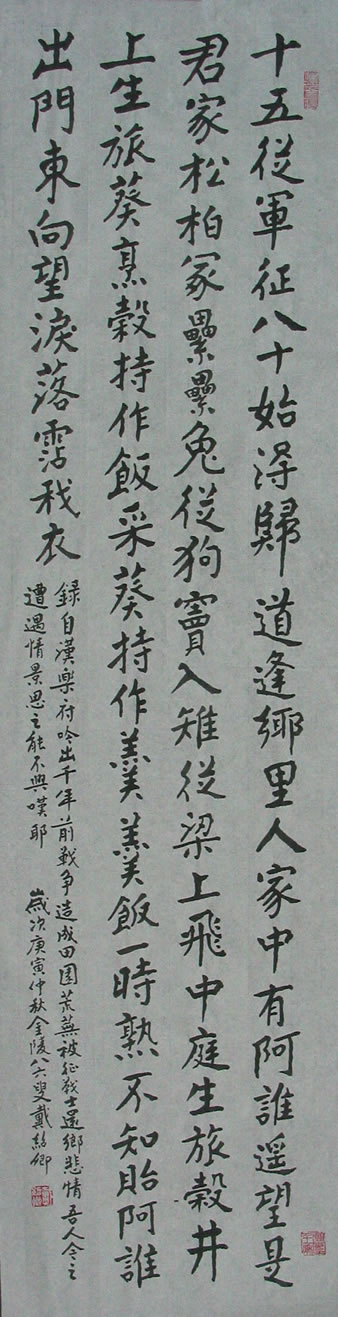 十五從軍征八十始得歸道逢鄉里人家中有阿誰遥望是
君家松柏冢纍纍兔從狗竇入雉從梁上飛中庭生旅穀井
上生旅葵烹穀持作飯采葵持作羹羹飯一時熟不知貽阿誰
出門東向望淚落霑我衣
録自漢樂府吟出千年前戰争造成田園荒蕪被征戰士還鄉悲情吾人今之
遭遇情景思之能不興嘆耶 歲次庚寅仲秋金陵八六叟戴 卿